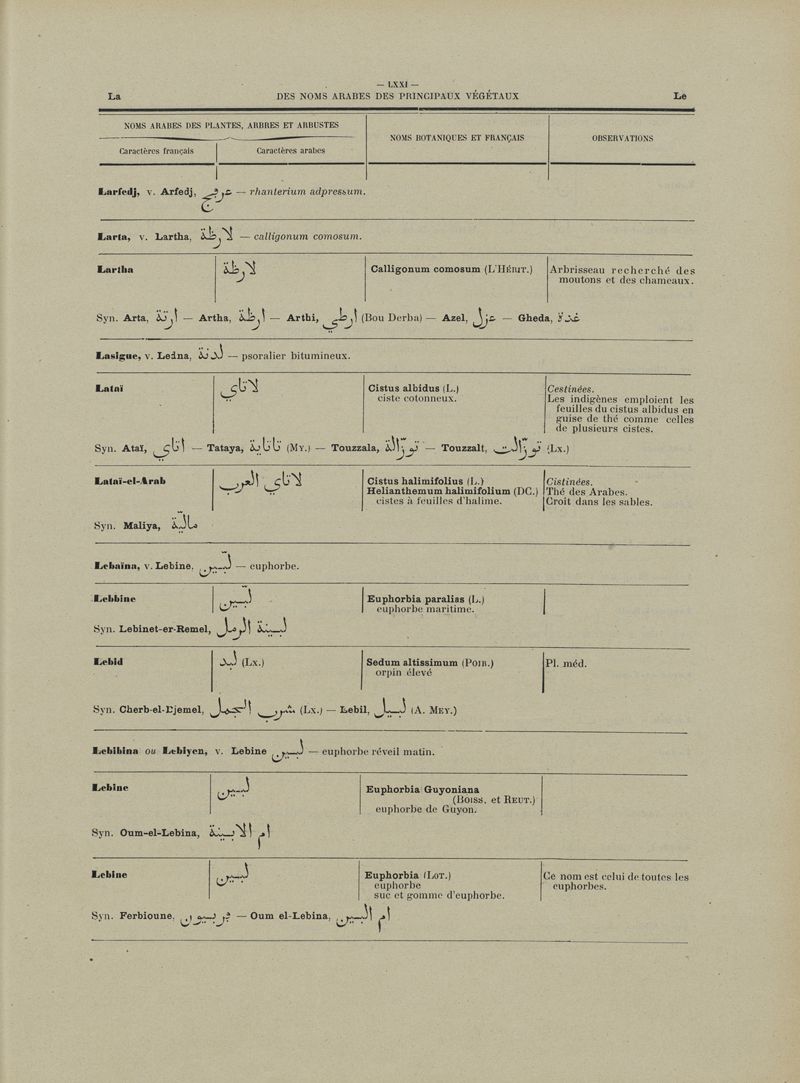 — LXXI —
La DES NOMS ARABES DES PRINCIPAUX VÉGÉTAUX Le
NOMS ARABES DES PLANTES, ARBRES ET ARBUSTES
NOMS BOTANIQUES ET FRANÇAIS
OBSERVATIONS
Caractères français
Caractères arabes
Larfedj, v. Arfedj, عرفج — rhanterium adpressum.
Larta, v. Lartha, لارطة — calligonum comosum.
Lartha لارطة Calligonum comosum (L'HÉRIT.) Arbrisseau recherché des
moutons et des chameaux.
Syn. Arta, ارتة — Artha, ارطة — Arthi, ارطي (Bou Derba) — Azel, عزل — Gheda, غدة
Lasigue, v. Ledna, لدنة — psoralier bitumineux.
Lataï لاتاي Cistus albidus (L.) Cestinées.
ciste cotonneux. Les indigènes emploient les
feuilles du cistus albidus en
guise de thé comme celles
de plusieurs cistes.
Syn. Ataï, اتاي — Tataya, تاتاية (MY.) — Touzzala, توزالة — Touzzalt, توزالت (LX.)
Lataï-el-Arab لاتاي العرب Cistus halimifolius (L.) Cistinées.
Helianthemum halimifolium (DC.) Thé des Arabes.
cistes à feuilles d'halime. Croit dans les sables.
Syn. Maliya, مالية
Lebaïna, v. Lebine, لبين — euphorbe.
Lebbine لبين Euphorbia paralias (L.)
euphorbe maritime.
Syn. Lebinet-er-Remel, لبينة الرمل
Lebid لبد (LX.) Sedum altissimum (POIR.) Pl. méd.
orpin élevé
Syn. Cherb-el-Djemel, شرب الجمل (LX.) — Lebil, لبيل (A. MEY.)
Lebibina ou Lebiyen, v. Lebine لبين — euphorbe réveil matin.
Lebine لبين Euphorbia Guyoniana
(BOISS. et REUT.)
euphorbe de Guyon.
Syn. Oum-el-Lebina, ام الابينة
Lebine لبين Euphorbia (LOT.) Ce nom est celui de toutes les
euphorbe euphorbes.
suc et gomme d'euphorbe.
Syn. Ferbioune, فربيون — Oum el-Lebina, ام البين